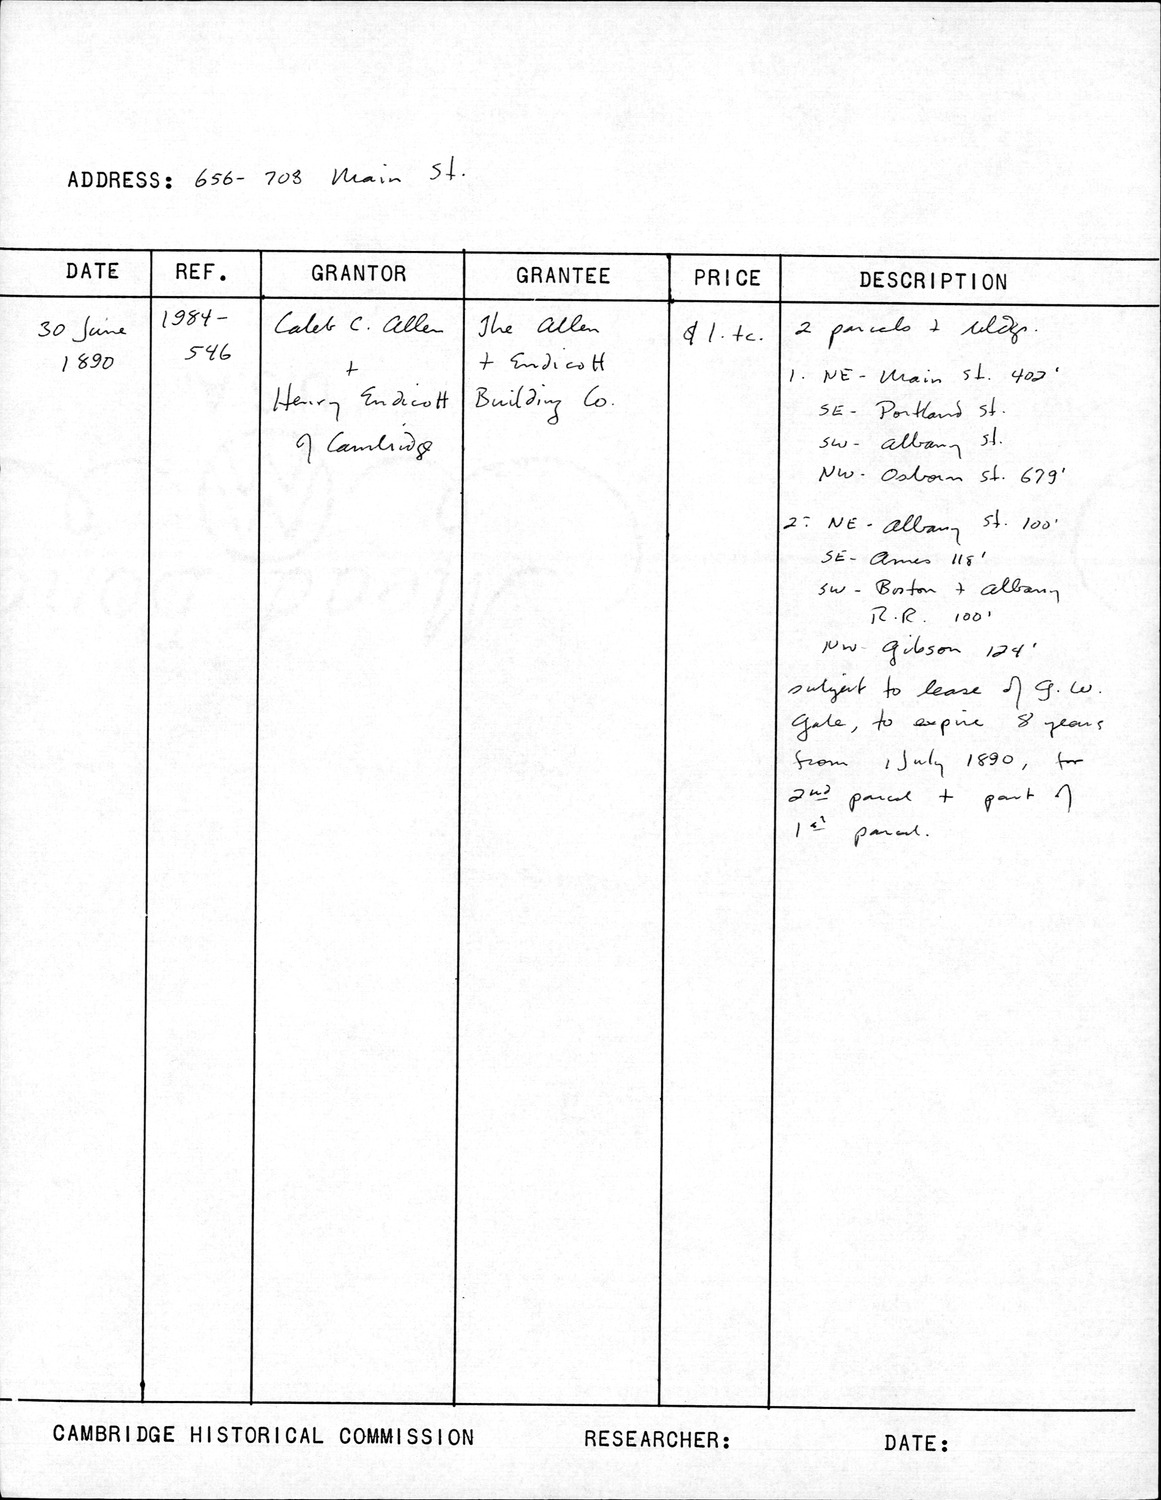 ADDRESS: 656-708 Main St.
DATE REF. GRANTOR GRANTEE PRICE DESCRIPTION
30 June
1890
1984-
546
Caleb C. Allen
+
Henry Endicott
of Cambridge
The Allen
+ Endicott
Building Co.
$1. +c.
2 parcels + bldgs.
1. NE - Main St. 402'
SE - Portland St.
SW - Albany St.
NW - Osborn St. 679'
2. NE - Albany St. 100'
SE - Ames 118'
SW - Boston + Albany
R.R. 100'
NW - Gibson 124'
subject to lease of G. W.
Gale, to expire 8 years
from 1 July 1890, for
2nd parcel + part of
1st parcel.
CAMBRIDGE HISTORICAL COMMISSION RESEARCHER: DATE: